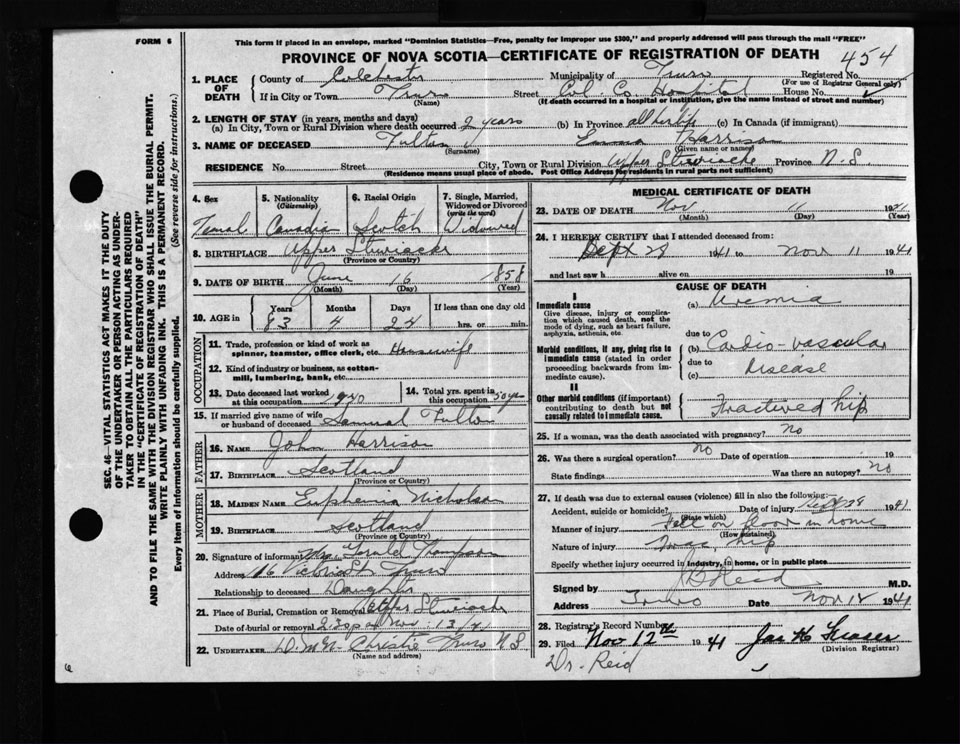 FORM 6
This form if placed in an envelope, marked "Dominion Statistics—Free, penalty for improper use $300," and properly addressed will pass through the mail "FREE"
PROVINCE OF NOVA SCOTIA—CERTIFICATE OF REGISTRATION OF DEATH
454
SEC. 46—VITAL STATISTICS ACT MAKES IT THE DUTY
OF THE UNDERTAKER OR PERSON ACTING AS UNDER-
TAKER TO OBTAIN ALL THE PARTICULARS REQUIRED
IN THE "CERTIFICATE OF REGISTRATION OF DEATH"
AND TO FILE THE SAME WITH THE DIVISION REGISTRAR WHO SHALL ISSUE THE BURIAL PERMIT.
WRITE PLAINLY WITH UNFADING INK. THIS IS A PERMANENT RECORD.
Every item of information should be carefully supplied. (See reverse side for instructions.)
1. PLACE OF DEATH
County of Colchester Municipality of Truro Registered No.
(For use of Registrar General only)
If in City or Town Truro Street Col. Co. Hospital House No.
(Name) (If death occurred in a hospital or institution, give the name instead of street and number)
2. LENGTH OF STAY (in years, months and days)
(a) In City, Town or Rural Division where death occurred 2 years (b) In Province all her life (c) In Canada (if immigrant)
3. NAME OF DECEASED Fulton Emma Harrison
(Surname) (Given name or names)
RESIDENCE No. Street City, Town or Rural Division Upper Stewiacke Province N-S
(Residence means usual place of abode. Post Office Address for residents in rural parts not sufficient)
4. Sex Femal
5. Nationality (Citizenship) Canadian
6. Racial Origin Scotch
7. Single, Married, Widowed or Divorced (write the word) Widowed
8. BIRTHPLACE Upper Stewiacke
(Province or Country)
9. DATE OF BIRTH June 16 1858
(Month) (Day) (Year)
10. AGE in Years Months Days If less than one day old
83 4 24 hrs. or min.
OCCUPATION
11. Trade, profession or kind of work as
spinner, teamster, office clerk, etc. Housewife
12. Kind of industry or business, as cotton-
mill, lumbering, bank, etc.
13. Date deceased last worked
at this occupation 1940
14. Total yrs. spent in
this occupation 50 yrs
15. If married give name of wife
or husband of deceased Samual Fulton
FATHER
16. NAME John Harrison
17. BIRTHPLACE Scotland
(Province or Country)
MOTHER
18. MAIDEN NAME Euphemia Nicholson
19. BIRTHPLACE Scotland
(Province or Country)
20. Signature of informant Mrs. Gerald Thompson
Address 116 Victoria St. Truro
Relationship to deceased Daughter
21. Place of Burial, Cremation or Removal Upper Stewiacke
Date of burial or removal 2.30 p Nov. 13/41
22. UNDERTAKER Christie Truro N S
(Name and address)
MEDICAL CERTIFICATE OF DEATH
23. DATE OF DEATH Nov. 11 1941
(Month) (Day) (Year)
24. I HEREBY CERTIFY that I attended deceased from:
Sept 29 1941 to Nov 11 1941
and last saw h alive on 19
CAUSE OF DEATH
I
Immediate cause
Give disease, injury or complica-
tion which caused death, not the
mode of dying, such as heart failure,
asphyxia, asthenia, etc.
(a) Uremia
due to
Morbid conditions, if any, giving rise to
immediate cause (stated in order
proceeding backwards from im-
mediate cause).
(b) Cardio-vascular
due to
(c) Disease
II
Other morbid conditions (if important)
contributing to death but not
causally related to immediate cause.
Fractured hip
25. If a woman, was the death associated with pregnancy? No
26. Was there a surgical operation? No Date of operation 19
State findings Was there an autopsy? No
27. If death was due to external causes (violence) fill in also the following:
Accident, suicide or homicide? Date of injury Sept 29 1941
(State which)
Manner of injury Fell on floor in home
(How sustained)
Nature of injury Frac. hip
Specify whether injury occurred in industry, in home, or in public place
Signed by Reid M.D.
Address Truro Date Nov 12 1941
28. Registrar's Record Number
29. Filed Nov 12th 1941 Jas H Fraser
(Division Registrar)
Dr. Reid